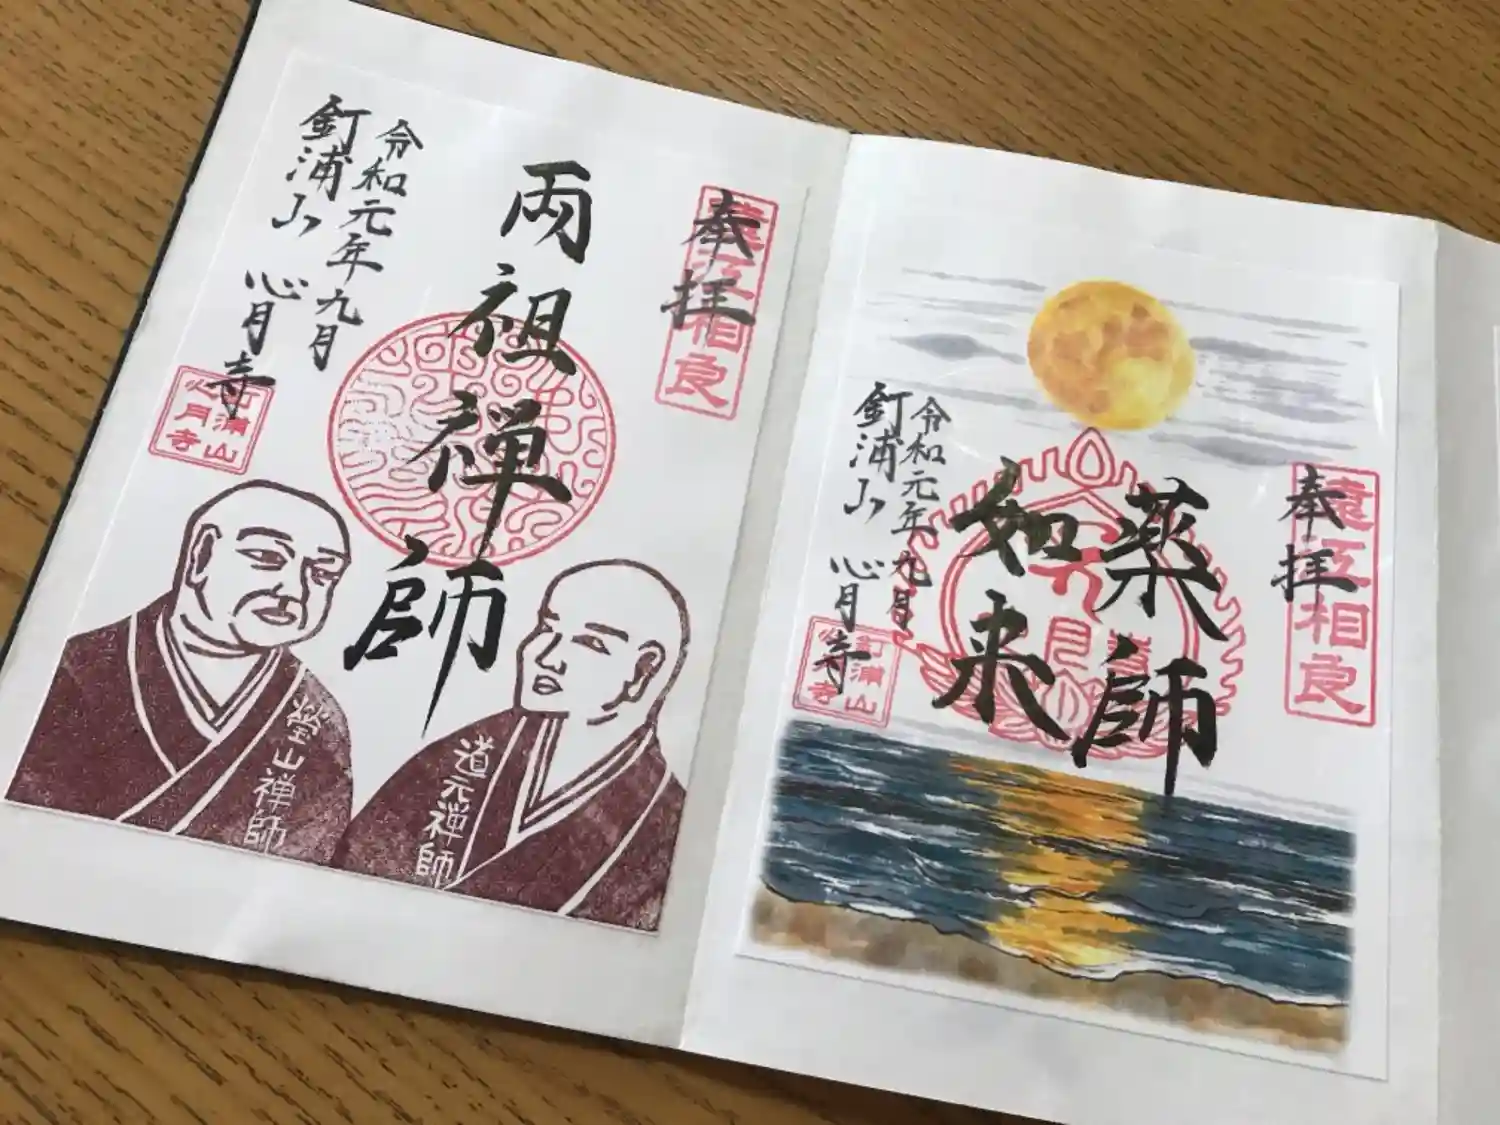 奉拝
遠江相良
両祖禅師
令和元年九月
釘浦山 心月寺
釘浦山
心月寺
瑩山禅師
道元禅師
奉拝
遠江相良
薬師
如来
令和元年九月
釘浦山 心月寺
釘浦山
心月寺